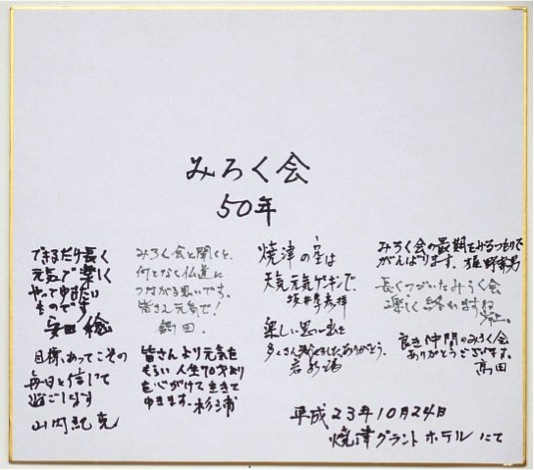 みろく会
50年
できるだけ長く
元気で楽しく
やってゆきたい
ものです
安田 稔
目標、あってこその
毎日と信じて
過ごします
山内紀克
みろく会と聞くと、
何となく仏道に
つながる思いです。
皆さん元気で!
鶴田.
皆さんより元気を
もらい人生70才より
を心がけて生きて
ゆきます。杉浦
焼津の空は
天気元気ゲンキンで.
楽しい思い出を
多くさんありがとう.
みろく会の最期をみるつもりで
がんばります.
長くつづいたみろく会
楽しく終れますね
良き仲間のみろく会
ありがとうございます。
高田
平成23年10月24日
焼津グランドホテルにて